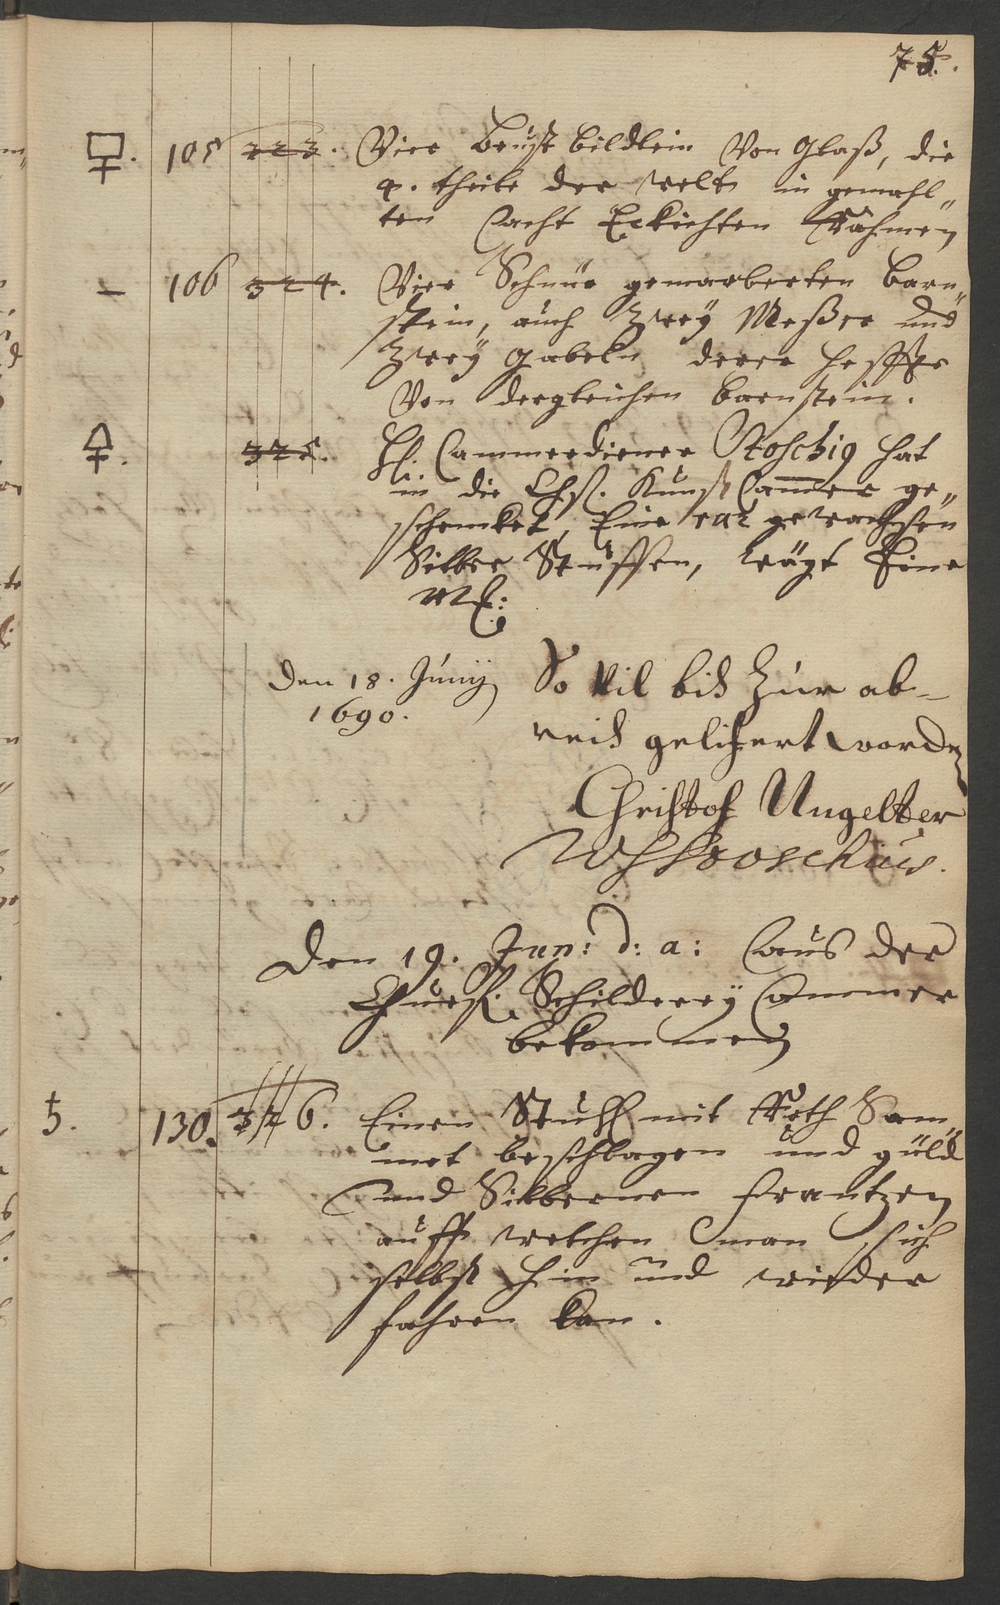 75.
105 323. Vier Brust bildlein Von Glaß, die
4. theile der welt in gemahl„
ten acht Eckichten Rähmen
106 324. Vier Schnür gemarberten Barn„
stein, auch Zweÿ Meßer und
Zweÿ gabeln derer Hefte
Von dergleichen barnstein.
325. H. Cammerdiener Stoschig hat
in die Chfl. Kunst Cammer ge„
schencket, Eine rar gewachsen
Silber Stuffen, wägt Eine
Mk:
Den 18. Junÿ
1690.
So vil biß zur ab-
reiß gelifert worden
Christof Ungelter
Den 19. Jun: d: a: aus der
Churfl. Schilderey Cammer
bekommen
5. 130. 326. Einen Stuhl mit Roth Sam„
met beschlagen und güld
und Silbernen Frantzen
auff welchen man sich
selbst hin und wieder
fahren kan.